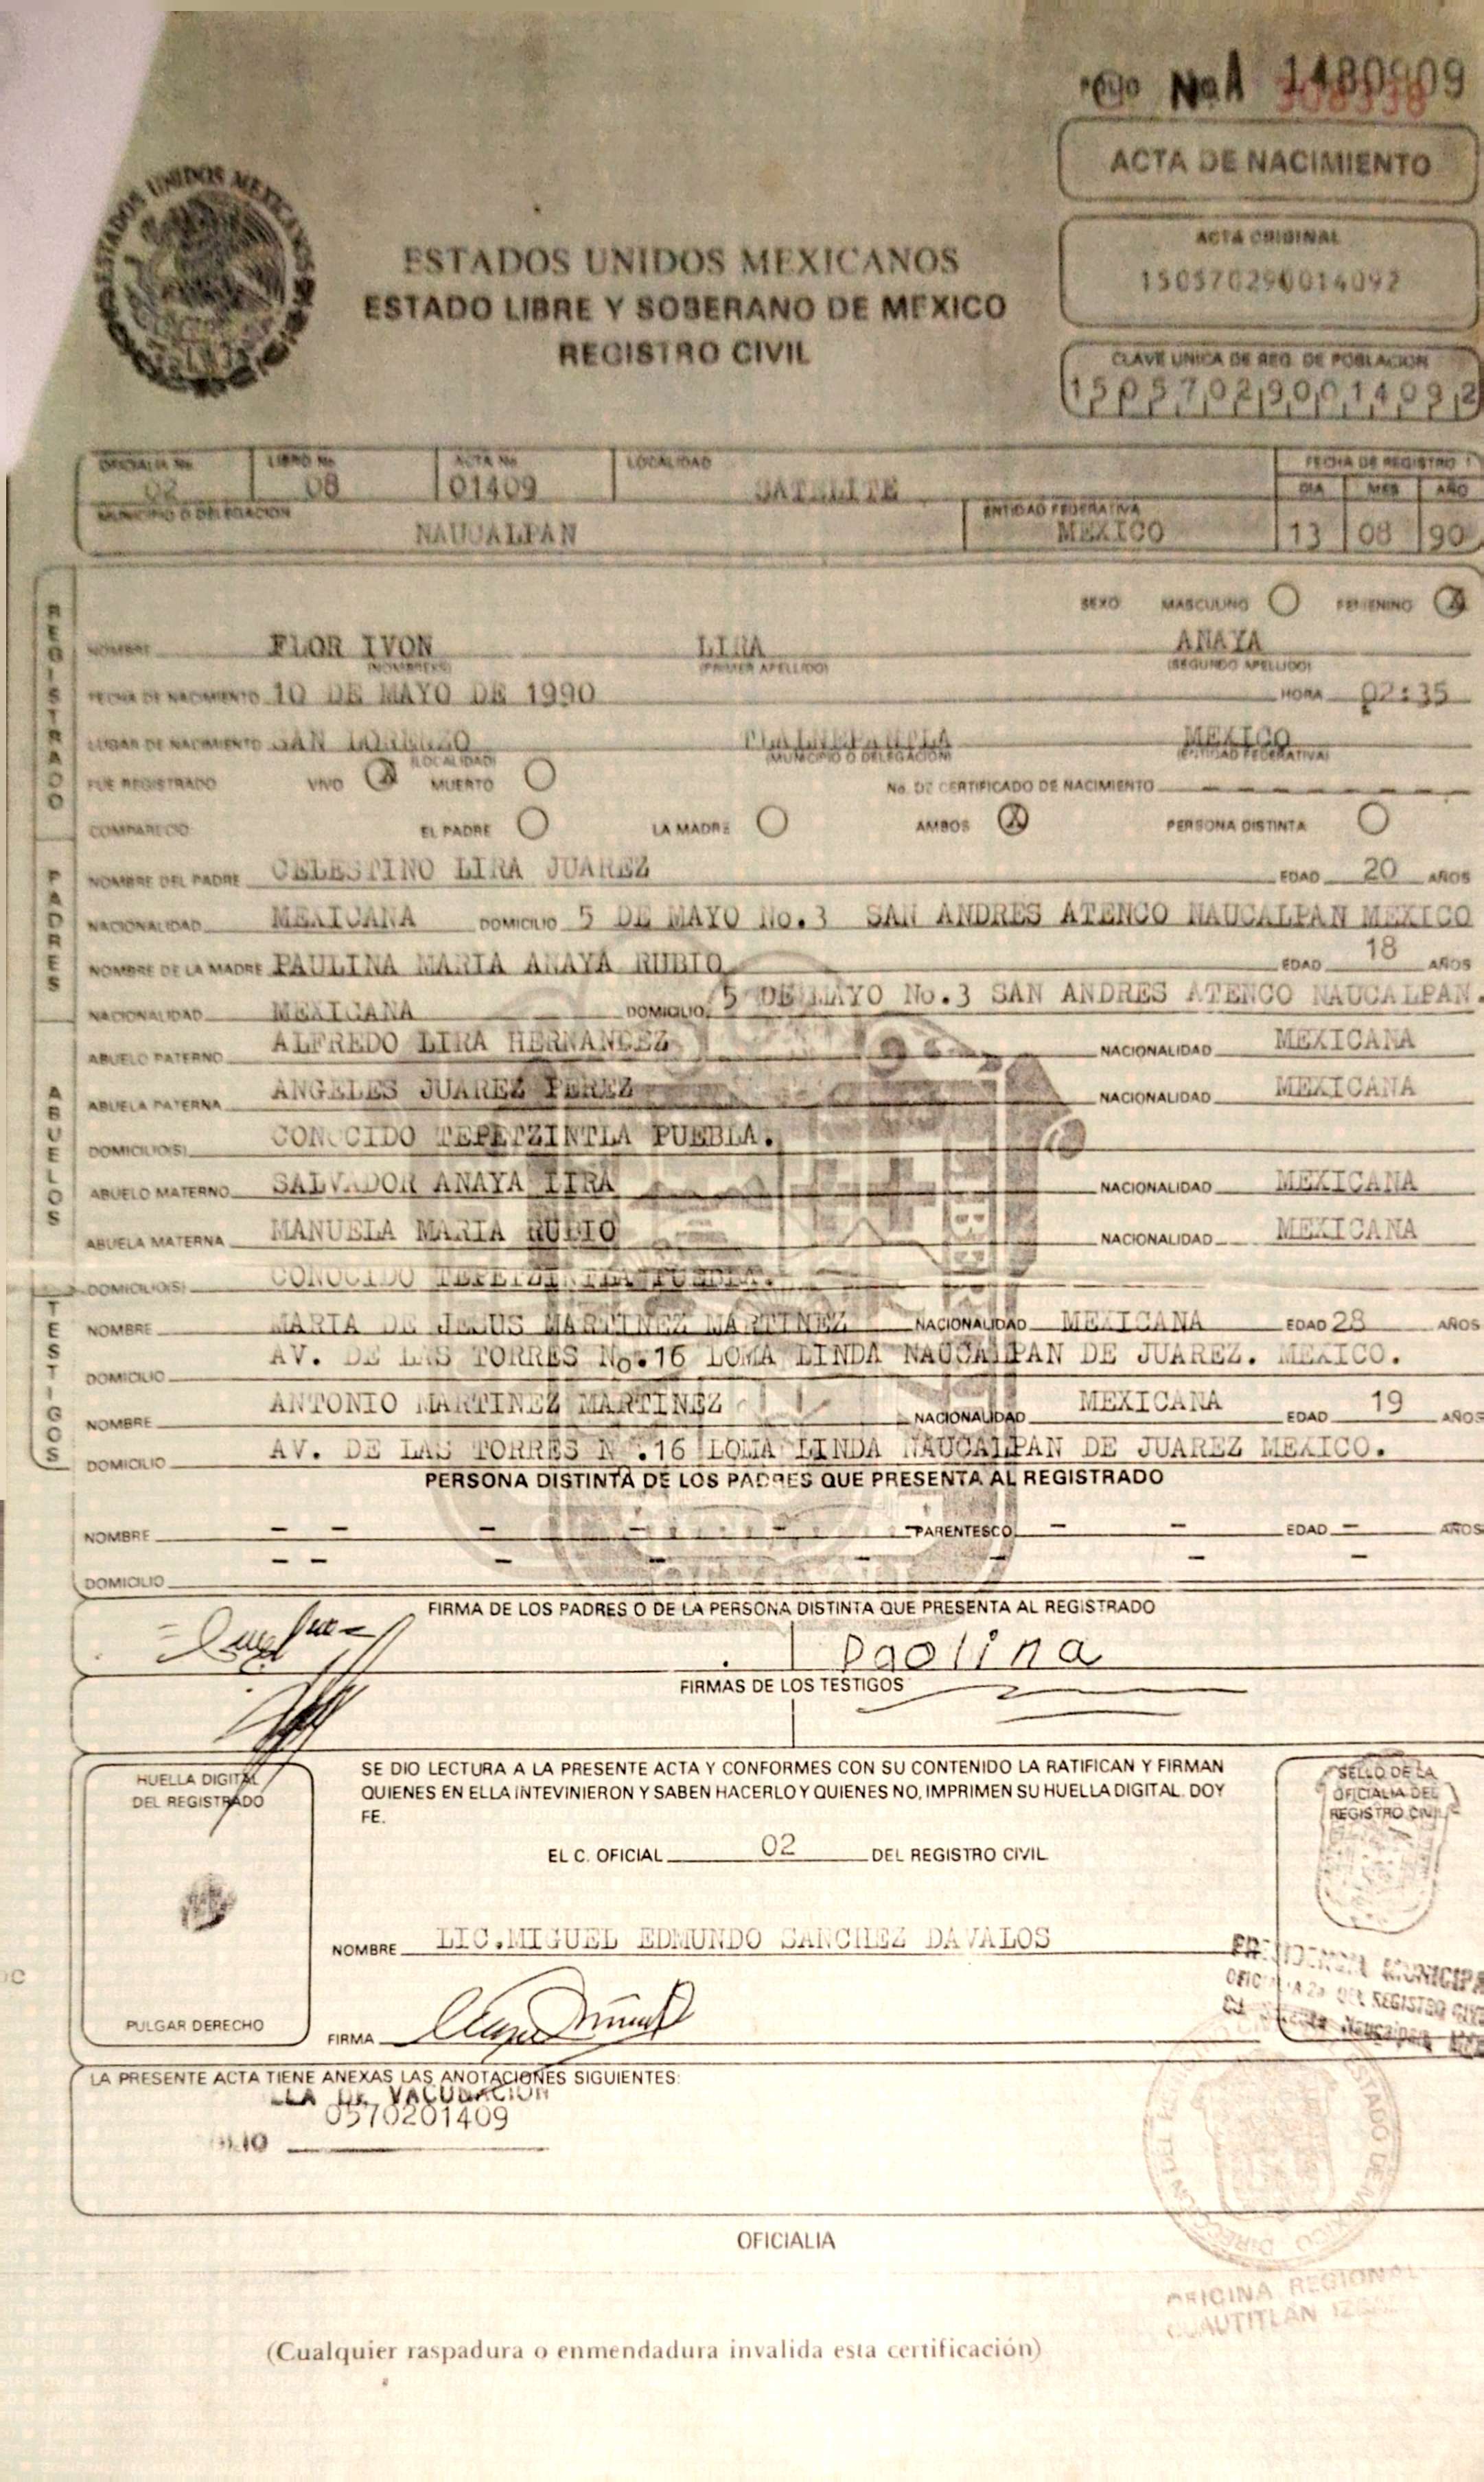 No A 1480909
ACTA DE NACIMIENTO
ESTADOS UNIDOS MEXICANOS
ACTA ORIGINAL
150570290014092
ESTADOS UNIDOS MEXICANOS
ESTADO LIBRE Y SOBERANO DE MEXICO
REGISTRO CIVIL
CLAVE UNICA DE REG. DE POBLACION
150570290014092
OFICIALIA No. LIBRO No ACTA No LOCALIDAD FECHA DE REGISTRO
02 08 01409 SATELITE DIA MES AÑO
MUNICIPIO O DELEGACION ENTIDAD FEDERATIVA
NAUCALPAN MEXICO 13 08 90
REGISTRADO
SEXO MASCULINO FEMENINO X
NOMBRE FLOR IVON LIRA ANAYA
(NOMBRES) (PRIMER APELLIDO) (SEGUNDO APELLIDO)
FECHA DE NACIMIENTO 10 DE MAYO DE 1990 HORA 02:35
LUGAR DE NACIMIENTO SAN LORENZO MEXICO
(LOCALIDAD) (MUNICIPIO O DELEGACION) (ENTIDAD FEDERATIVA)
FUE REGISTRADO VIVO X MUERTO No. DE CERTIFICADO DE NACIMIENTO
COMPARECIO EL PADRE LA MADRE AMBOS X PERSONA DISTINTA
PADRES
NOMBRE DEL PADRE CELESTINO LIRA JUAREZ EDAD 20 AÑOS
NACIONALIDAD MEXICANA DOMICILIO 5 DE MAYO No.3 SAN ANDRES ATENCO NAUCALPAN MEXICO
NOMBRE DE LA MADRE PAULINA MARIA ANAYA RUBIO EDAD 18 AÑOS
NACIONALIDAD MEXICANA DOMICILIO 5 DE MAYO No.3 SAN ANDRES ATENCO NAUCALPAN.
ABUELOS
ABUELO PATERNO ALFREDO LIRA HERNANDEZ NACIONALIDAD MEXICANA
ABUELA PATERNA ANGELES JUAREZ PEREZ NACIONALIDAD MEXICANA
DOMICILIO(S) CONOCIDO TEPETZINTLA PUEBLA.
ABUELO MATERNO SALVADOR ANAYA LIRA NACIONALIDAD MEXICANA
ABUELA MATERNA MANUELA MARIA RUBIO NACIONALIDAD MEXICANA
DOMICILIO(S) CONOCIDO TEPETZINTLA PUEBLA.
TESTIGOS
NOMBRE MARIA DE JESUS MARTINEZ MARTINEZ NACIONALIDAD MEXICANA EDAD 28 AÑOS
DOMICILIO AV. DE LAS TORRES No.16 LOMA LINDA NAUCALPAN DE JUAREZ. MEXICO.
NOMBRE ANTONIO MARTINEZ MARTINEZ NACIONALIDAD MEXICANA EDAD 19 AÑOS
DOMICILIO AV. DE LAS TORRES N .16 LOMA LINDA NAUCALPAN DE JUAREZ MEXICO.
PERSONA DISTINTA DE LOS PADRES QUE PRESENTA AL REGISTRADO
NOMBRE - - - - - PARENTESCO - - EDAD - AÑOS
DOMICILIO - - - - - - - -
FIRMA DE LOS PADRES O DE LA PERSONA DISTINTA QUE PRESENTA AL REGISTRADO
Paolina
FIRMAS DE LOS TESTIGOS
HUELLA DIGITAL
DEL REGISTRADO
PULGAR DERECHO
SE DIO LECTURA A LA PRESENTE ACTA Y CONFORMES CON SU CONTENIDO LA RATIFICAN Y FIRMAN
QUIENES EN ELLA INTEVINIERON Y SABEN HACERLO Y QUIENES NO, IMPRIMEN SU HUELLA DIGITAL. DOY
FE.
EL C. OFICIAL 02 DEL REGISTRO CIVIL
NOMBRE LIC.MIGUEL EDMUNDO SANCHEZ DAVALOS
FIRMA
SELLO DE LA
OFICIALIA DEL
REGISTRO CIVIL
LA PRESENTE ACTA TIENE ANEXAS LAS ANOTACIONES SIGUIENTES:
VACUNACION
0570201409
OFICIALIA
OFICINA REGIONAL
CUAUTITLAN
(Cualquier raspadura o enmendadura invalida esta certificación)